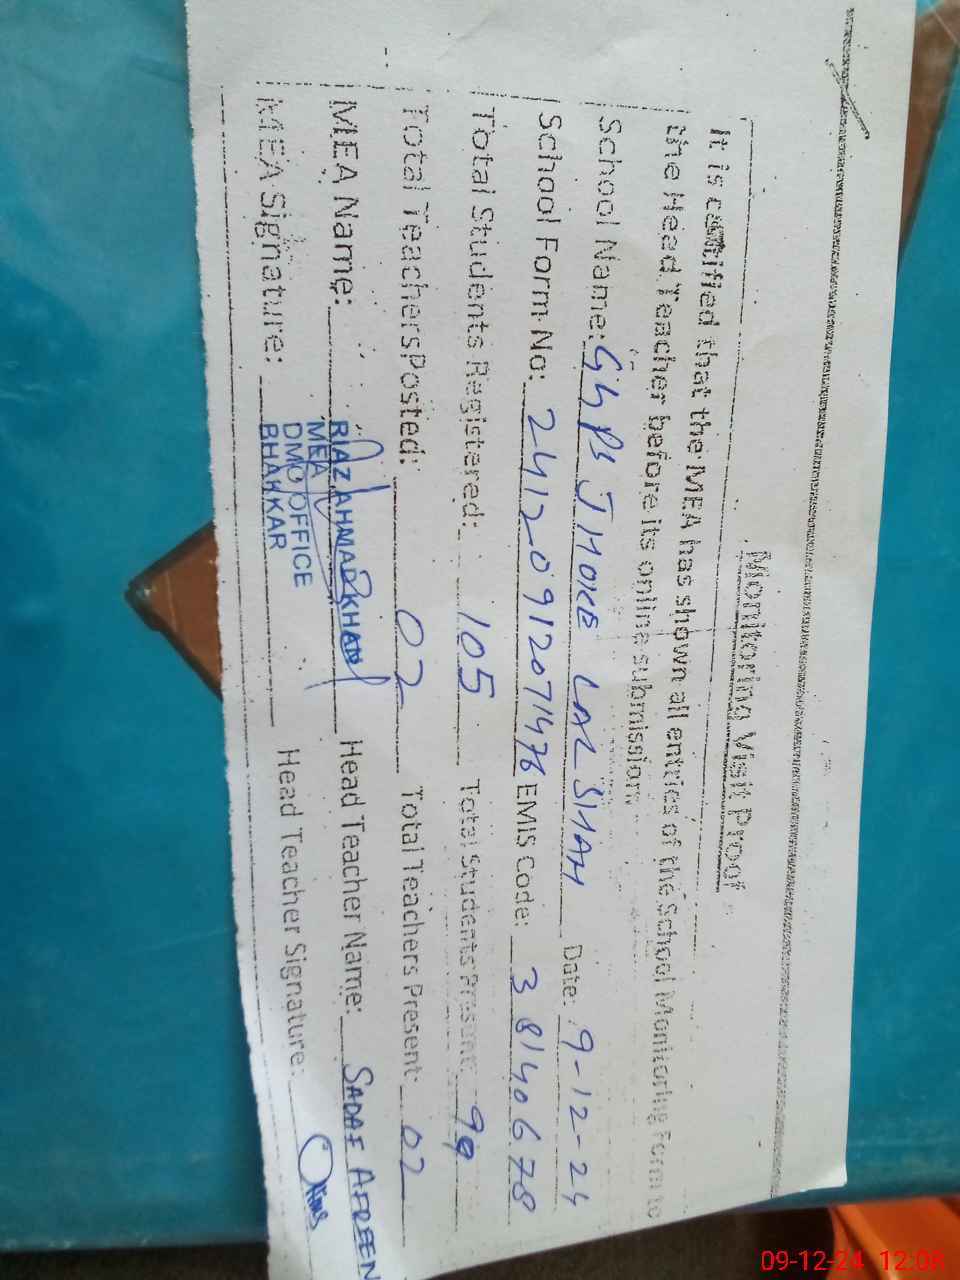 Monitoring Visit Proof
It is certified that the MEA has shown all entries of the School Monitoring Form to
the Head Teacher before its online submission.
School Name: GGPS JHOKE LAL SHAH Date: 9-12-24
School Form No: 24120912071476 EMIS Code: 38140678
Total Students Registered: 105 Total Students Present: 99
Total Teachers Posted: 02 Total Teachers Present: 02
MEA Name: RIAZ AHMAD KHAN Head Teacher Name: SADAF AFREEN
MEA
DMO OFFICE
BHAKKAR
MEA Signature: Head Teacher Signature:
09-12-24 12:08